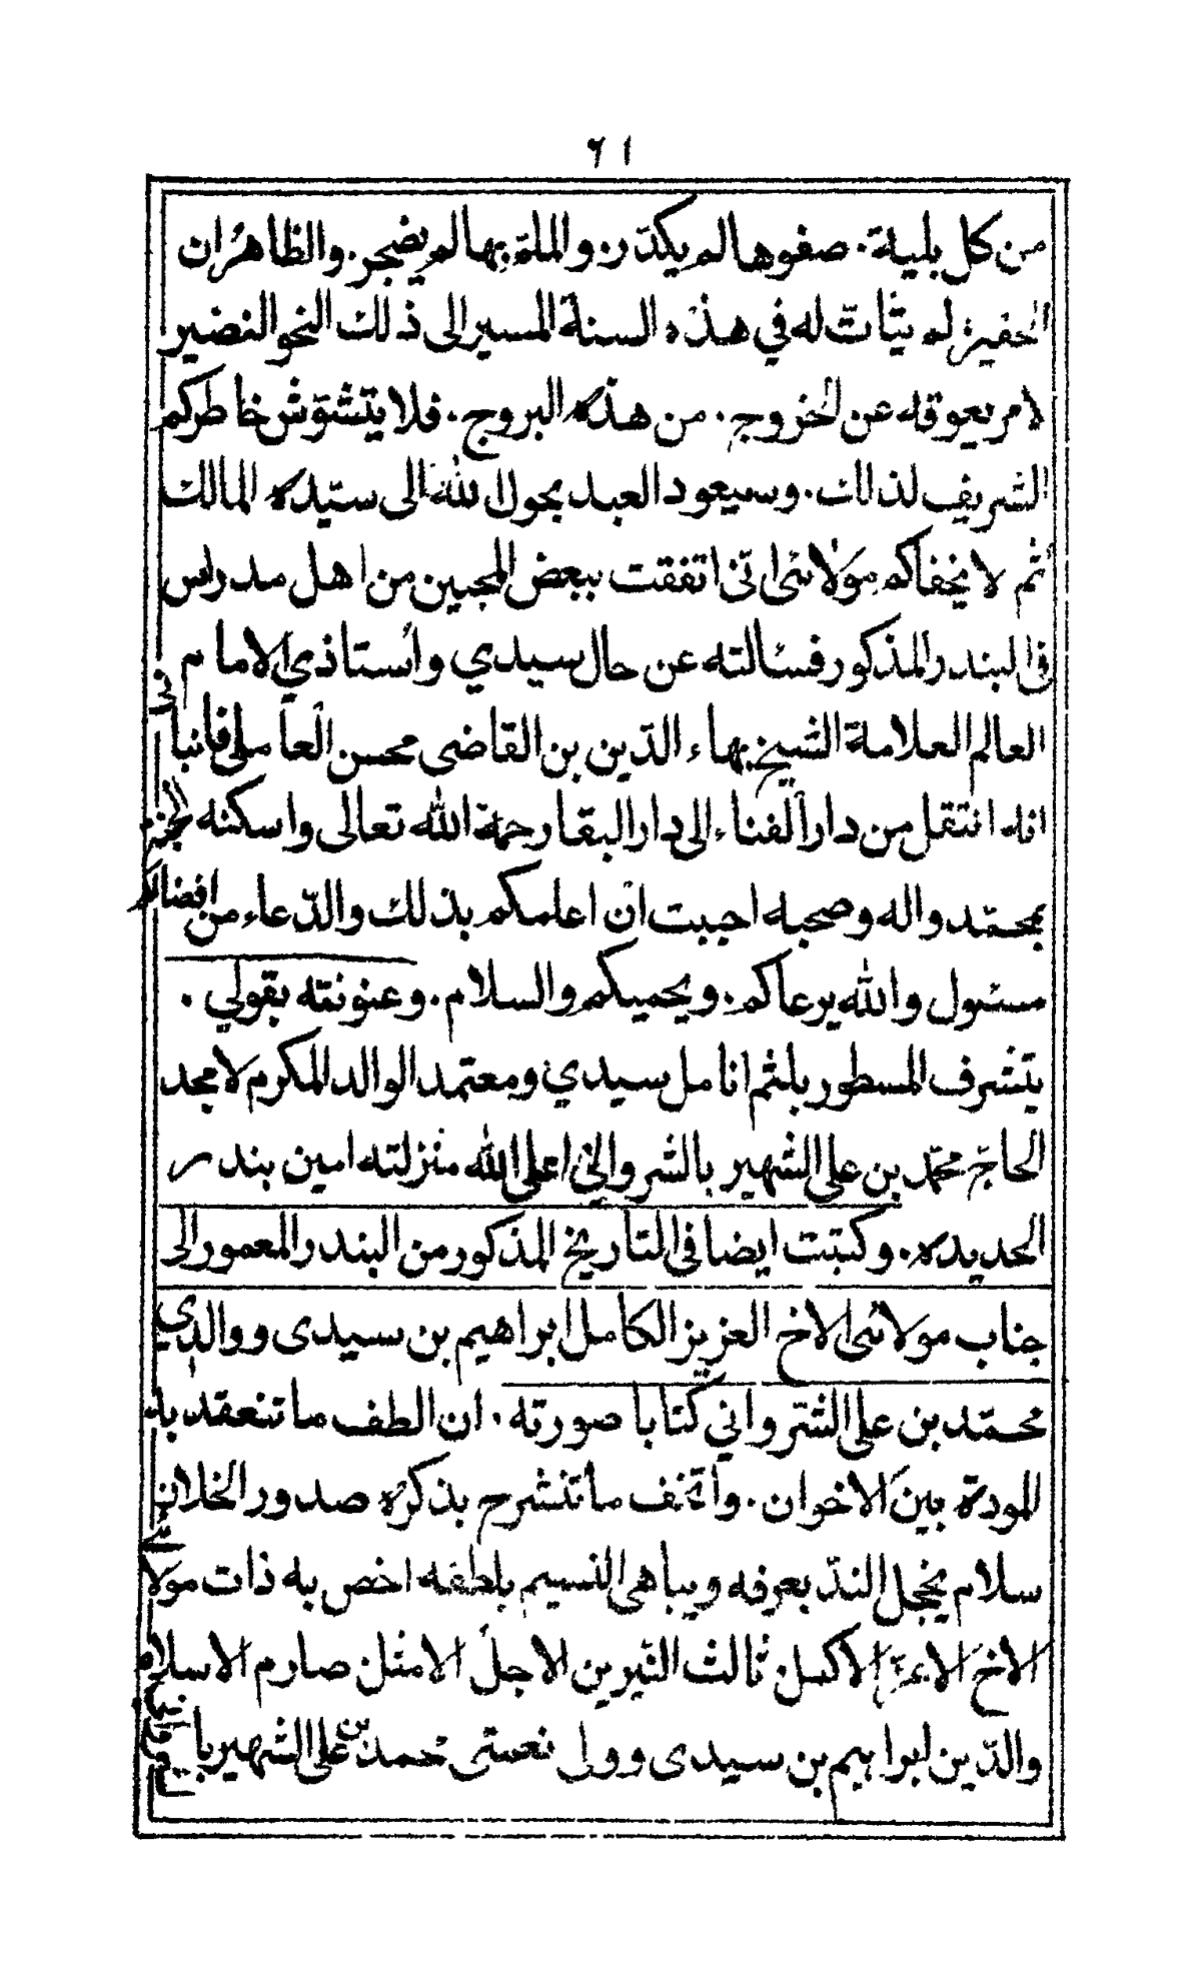 ٦١
من كل بلية . صفوها لم يكدّر . والملمّ بها لم يضجر . والظاهر ان
الحقير لم يتأتّ له في هذه السنة المسير الى ذلك النحو النضير
لامر يعوقه عن الخروج . من هذه البروج . فلا يتشوّش خاطركم
الشريف لذلك . وسيعود العبد بحول الله الى سيّده المالك
ثم لا يخفاكم مولائى انى اتفقت ببعض المحبين من اهل مدراس
فى البندر المذكور فسئالته عن حال سيدي وأستاذي الامام
العالم العلامة الشيخ بهاء الدّين بن القاضى محسن العاملى فانبانى
انه انتقل من دار الفناء الى دار البقا رحمة الله تعالى واسكنه الجنة
بمحمّد واله وصحبه احببت ان اعلمكم بذلك والدّعاء من افضالكم
مسئول والله يرعاكم . ويحميكم والسلام . وعنونته بقولي .
يتشرف المسطور بلثم انامل سيدي ومعتمد الوالد المكرم لامجد
الحاجّ محمّد بن على الشهير بالشرواني اعلى الله منزلته امين بندر
الحديده . وكتبت ايضا فى التاريخ المذكور من البندر المعمور الى
جناب مولائى الاخ العزيز الكامل ابراهيم بن سيدى ووالدي
محمّد بن على الشرواني كتابا صورته . ان الطف ما تنعقد به
المودة بين الاخوان . واتحف ما تنشرح بذكره صدور الخلان
سلام يخجل الندّ بعرفه ويباهى النسيم بلطفه اخص به ذات مولائى
الاخ الاعزّ الاكمل ثالث النيّرين الاجلّ الامثل صارم الاسلام
والدّين ابراهيم بن سيدى وولى نعمتى محمد بن على الشهير